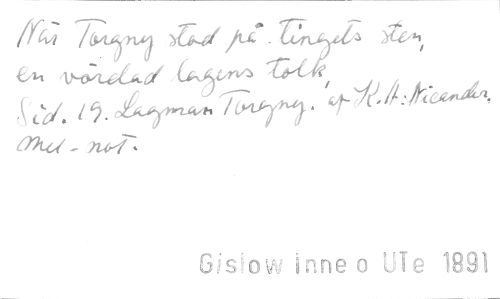 När Torgny stod på tingets sten,
en vördad lagens tolk,
Sid. 19. Lagman Torgny. af K. A. Nicander.
Mel-not.
Gislow Inne o UTe 1891